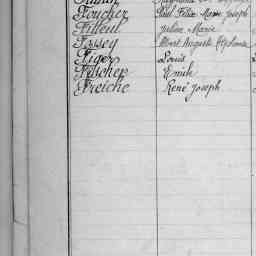 Foucher Paul Félix Marie Joseph
Filleul Julien Marie
Fossey Albert Auguste Alphonse
Figer Louis
Fletcher Emile
Freiche René Joseph